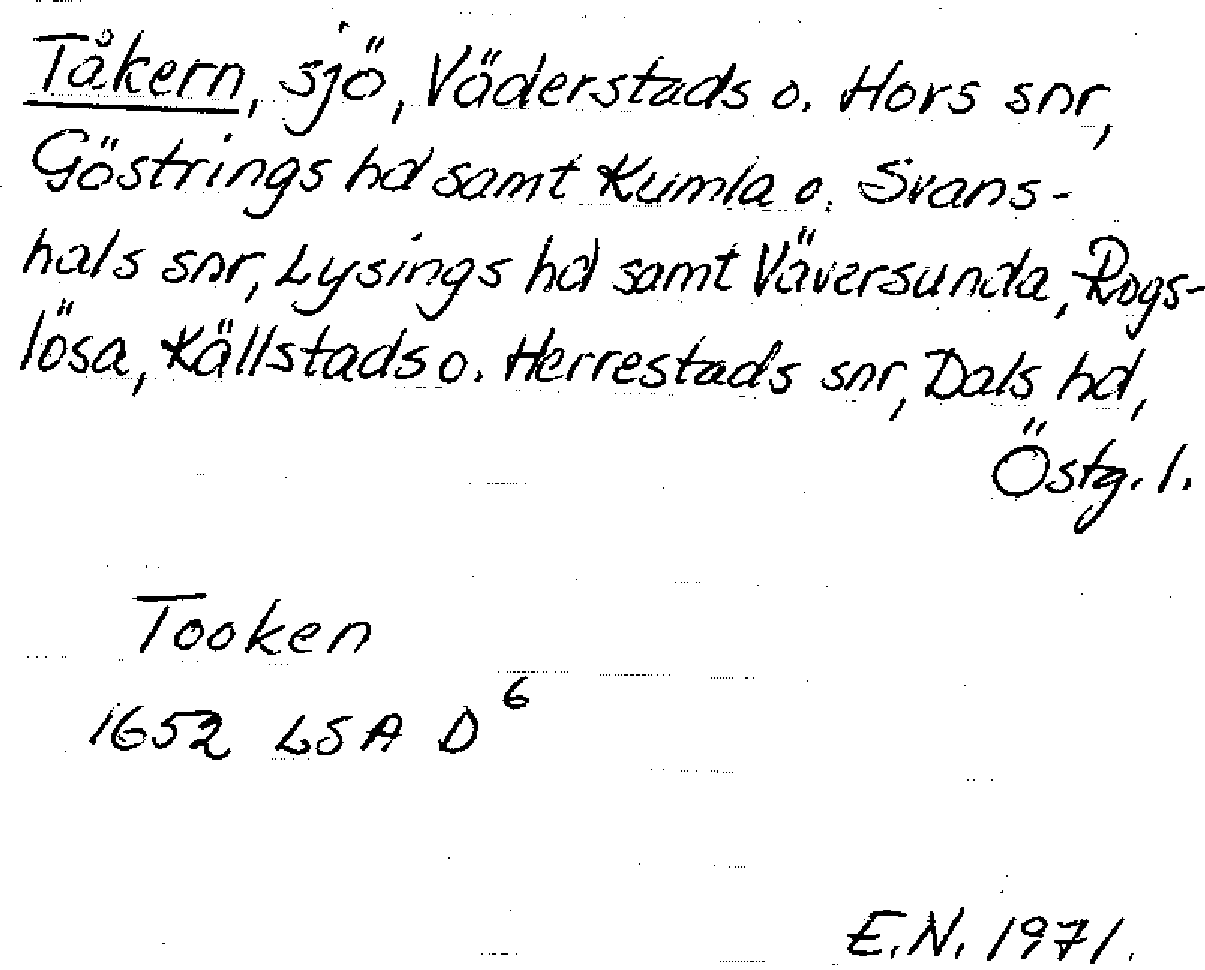 Tåkern, sjö, Väderstads o. Hovs snr,
Göstrings hd samt Kumla o. Svans-
hals snr, Lysings hd samt Väversunda, Rogs-
lösa, Källstads o. Herrestads snr, Dals hd,
Östg. l.
Tooken
1652 LSA D6
E.N. 1971.